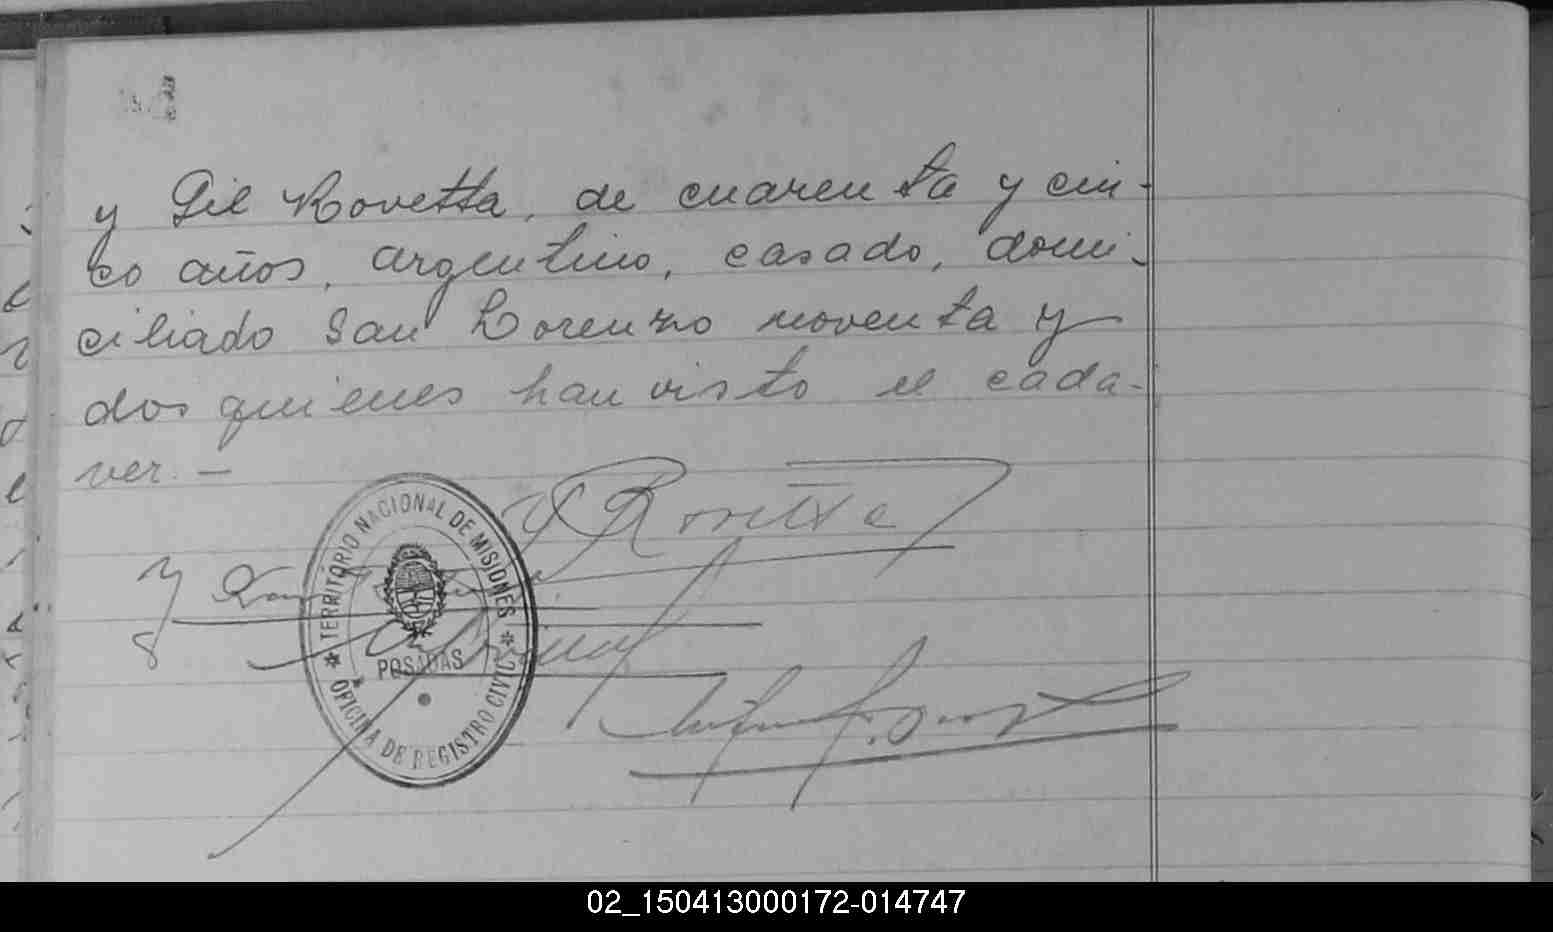 y Gil Rovetta, de cuarenta y cin-
co años, argentino, casado, domi-
ciliado San Lorenzo noventa y
dos quienes han visto el cada-
ver. —
Rovetta
TERRITORIO NACIONAL DE MISIONES
POSADAS
OFICINA DE REGISTRO CIVIL
02_150413000172-014747